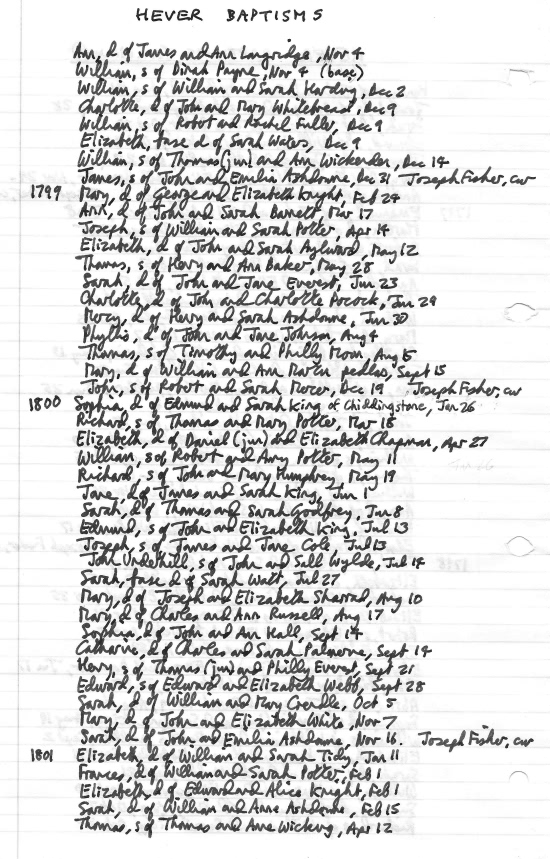 HEVER BAPTISMS
Ann, d of James and Ann Langridge, Nov 4
William, s of Dinah Payne, Nov 4 (base)
William, s of William and Sarah Harding, Dec 2
Charlotte, d of John and Mary Whitebread, Dec 9
William, s of Robert and Rachel Fuller, Dec 9
Elizabeth, base d of Sarah Waters, Dec 9
William, s of Thomas (jun) and Ann Wickenden, Dec 14
James, s of John and Emilia Ashdowne, Dec 31 Joseph Fisher, cur
1799 Mary, d of George and Elizabeth Knight, Feb 24
Ann, d of John and Sarah Barnett, Mar 17
Joseph, s of William and Sarah Potter, Apr 14
Elizabeth, d of John and Sarah Aylward, May 12
Thomas, s of Henry and Ann Baker, May 28
Sarah, d of John and Jane Everest, Jun 23
Charlotte, d of John and Charlotte Pocock, Jun 29
Mercy, d of Henry and Sarah Ashdowne, Jun 30
Phyllis, d of John and Jane Johnson, Aug 4
Thomas, s of Timothy and Philly Moon, Aug 5
Mary, d of William and Ann Martin pedlar, Sept 15
John, s of Robert and Sarah Mercer, Dec 19 Joseph Fisher, cur
1800 Sophia, d of Edmund and Sarah King of Chiddingstone, Jan 26
Richard, s of Thomas and Mary Potter, Mar 16
Elizabeth, d of Daniel (jun) and Elizabeth Chapman, Apr 27
William, s of Robert and Amy Potter, May 11
Richard, s of John and Mary Humphrey, May 19
Jane, d of James and Sarah King, Jun 1
Sarah, d of Thomas and Sarah Godfrey, Jun 8
Edmund, s of John and Elizabeth King, Jul 13
Joseph, s of James and Jane Cole, Jul 13
John Underhill, s of John and Sall Wylde, Jul 14
Sarah, base d of Sarah Walt, Jul 27
Mary, d of Joseph and Elizabeth Sharrad, Aug 10
Mary, d of Charles and Ann Russell, Aug 17
Sophia, d of John and Ann Hall, Sept 14
Catharine, d of Charles and Sarah Palmorne, Sept 14
Henry, s of Thomas (jun) and Philly Everest, Sept 21
Edward, s of Edward and Elizabeth Webb, Sept 28
Sarah, d of William and Mary Crendle, Oct 5
Mary, d of John and Elizabeth White, Nov 7
Sarah, d of John and Emilia Ashdowne, Nov 16. Joseph Fisher, cur
1801 Elizabeth, d of William and Sarah Tidy, Jan 11
Frances, d of William and Sarah Potter, Feb 1
Elizabeth, d of Edward and Alice Knight, Feb 1
Sarah, d of William and Anne Ashdowne, Feb 15
Thomas, s of Thomas and Anne Wicking, Apr 12